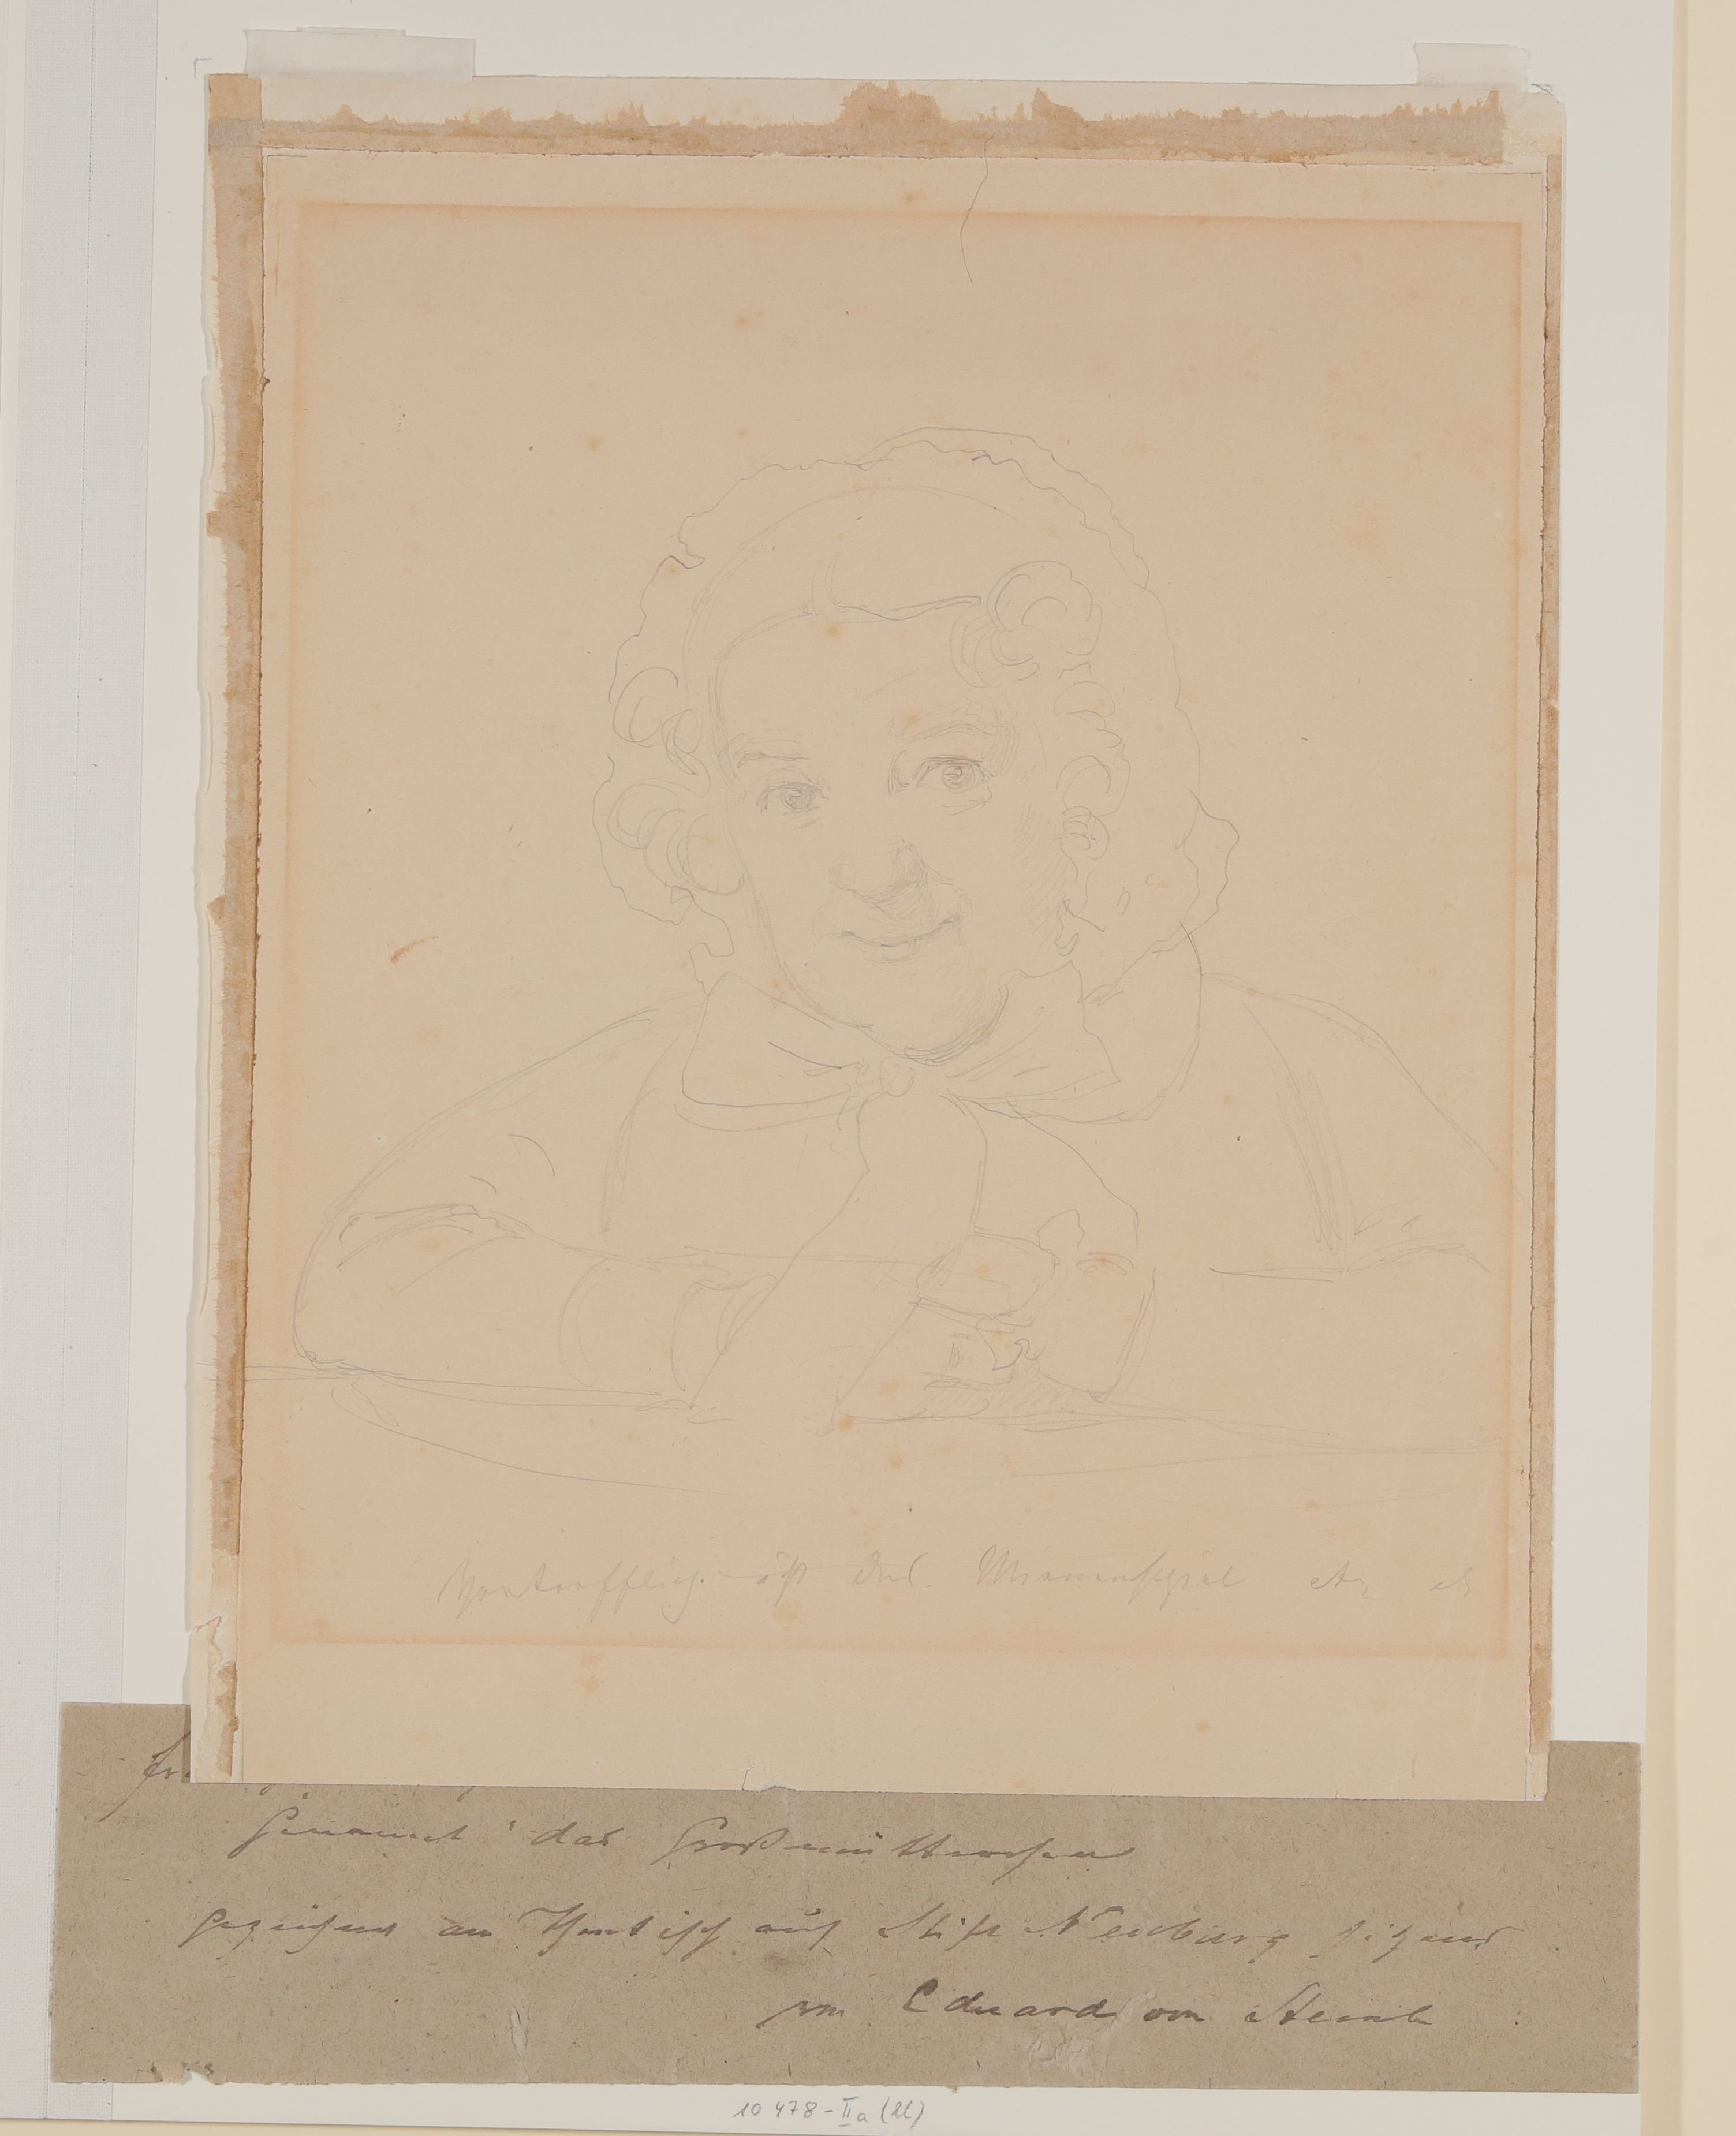 Vortrefflich ist das Mienenspiel etc etc
genannt "das Großmütterchen
gezeichnet am Theetisch auf Stift Neuburg sitzend
von Eduard von Steinle
10 478-IIa (ll)